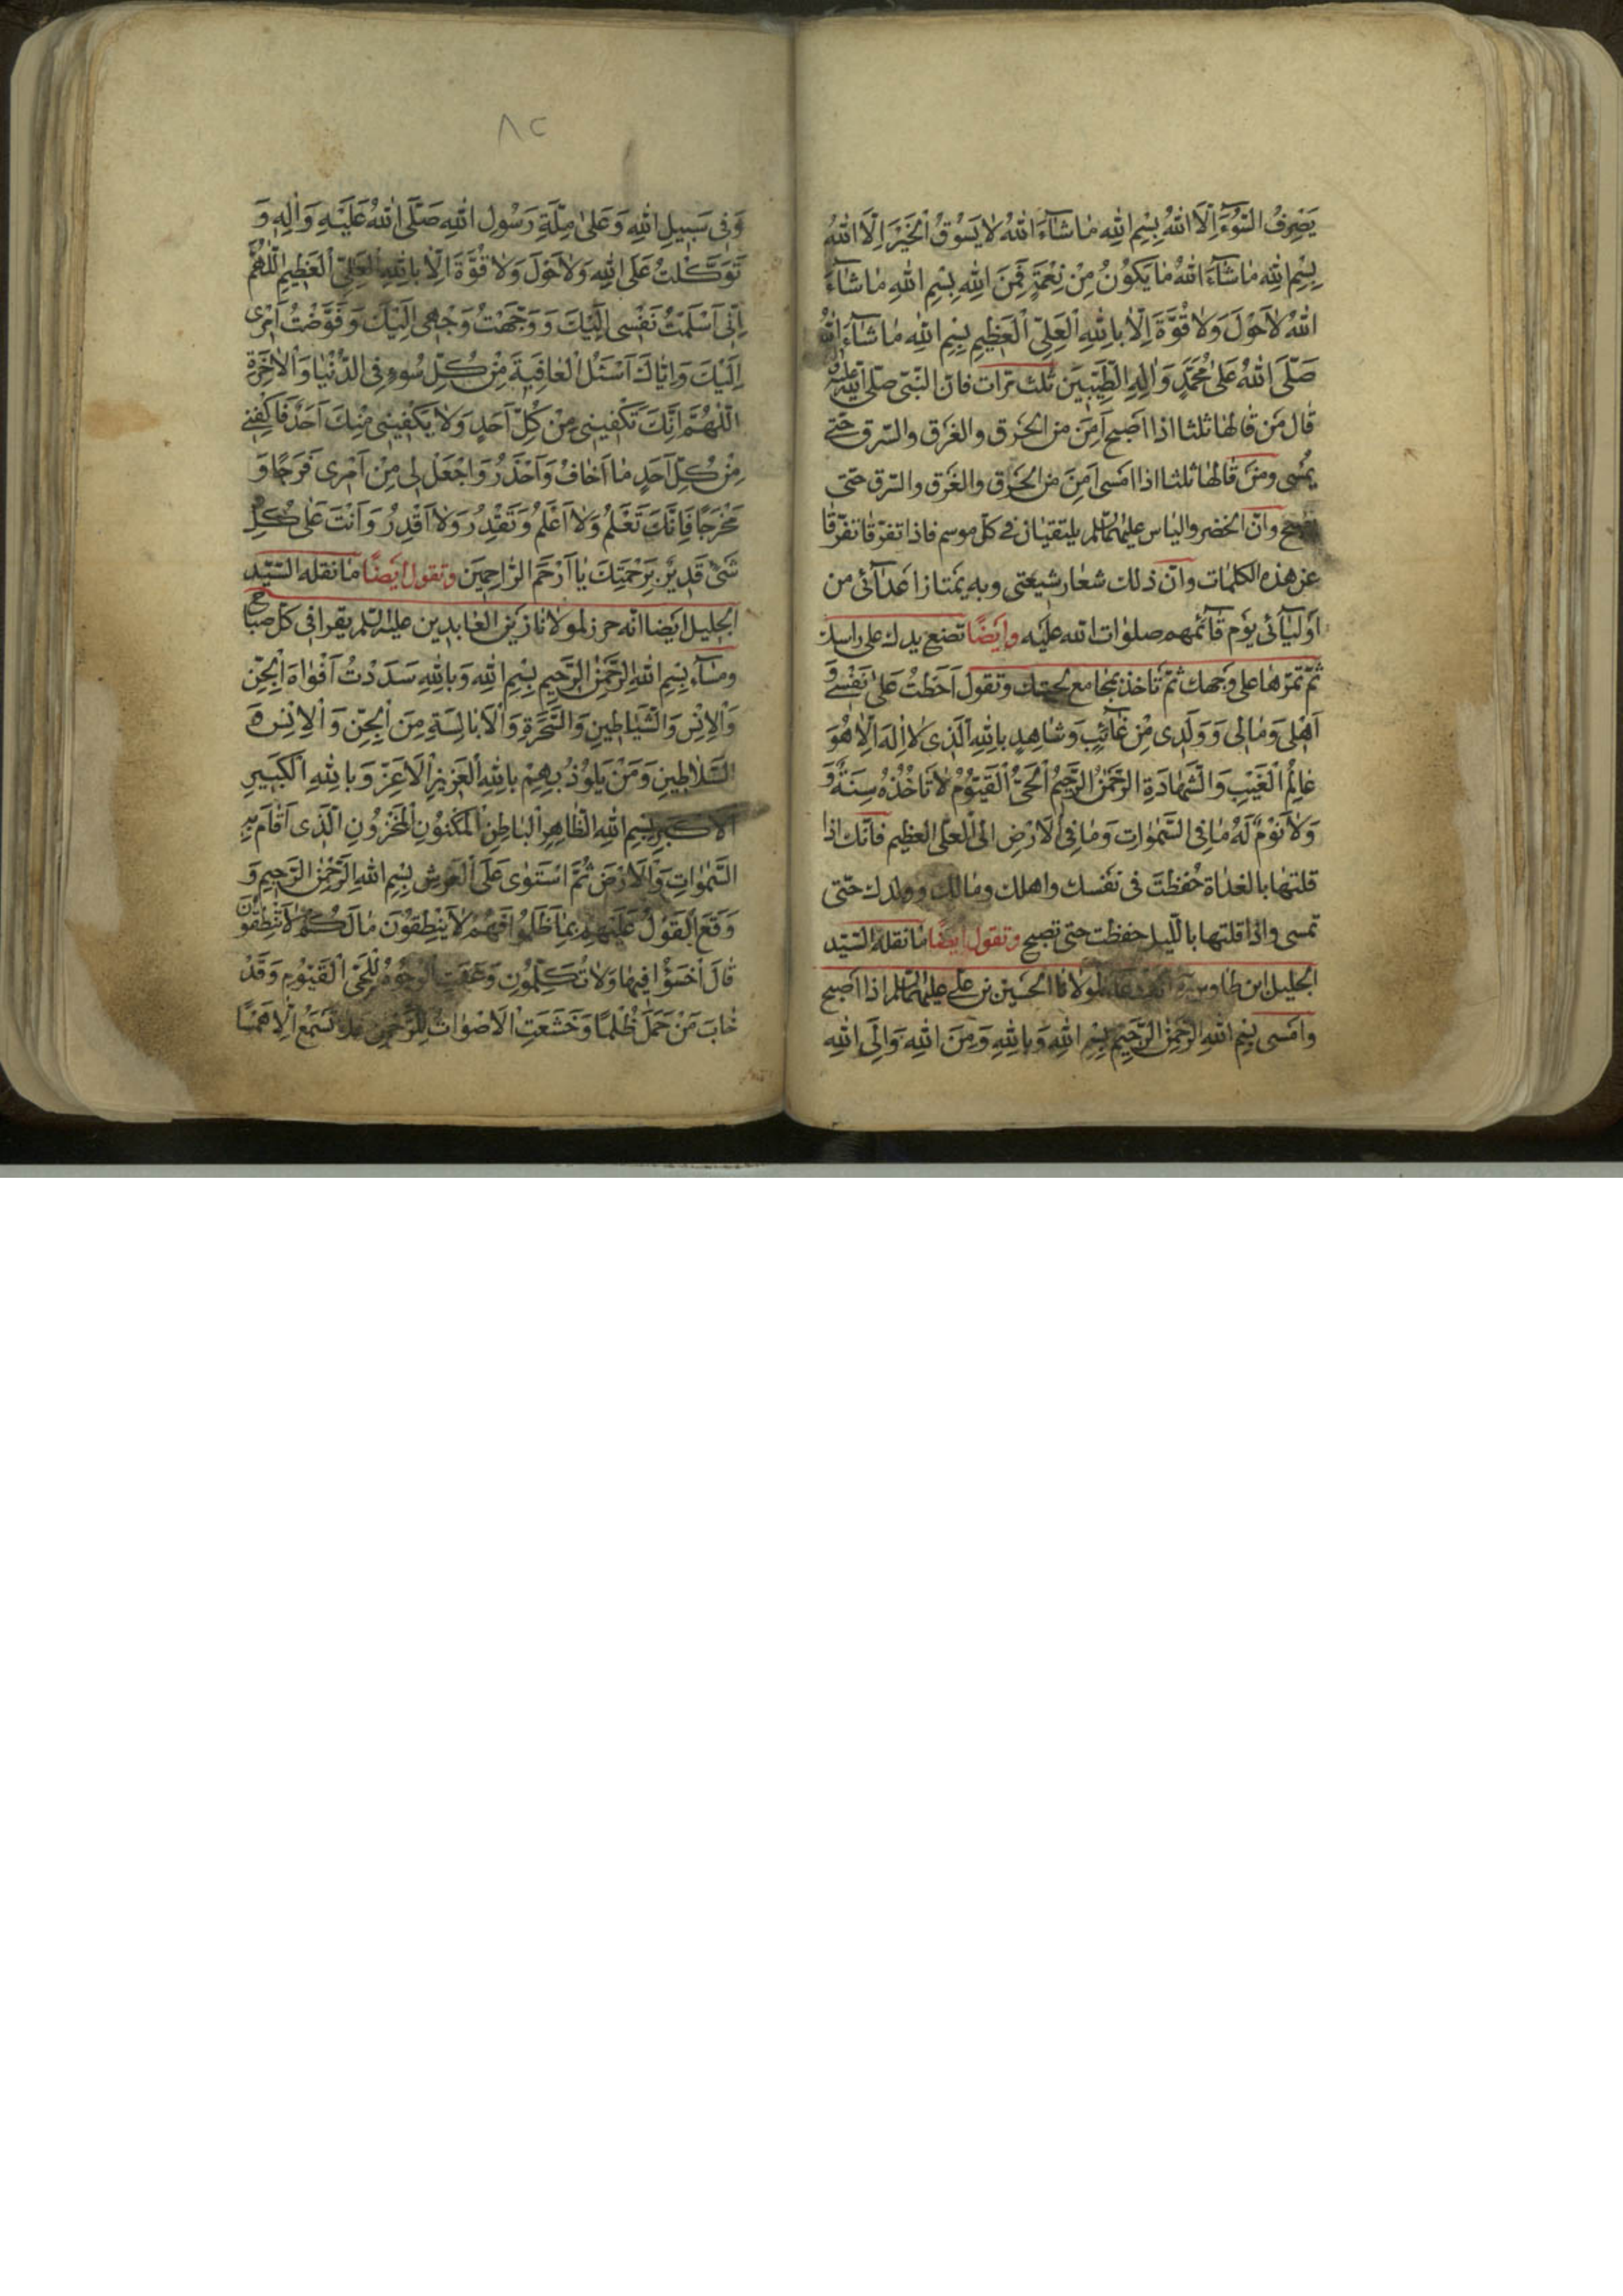 يَصْرِفُ السُّوٓءَ اِلَّا اللهُ بِسْمِ اللهِ مٰا شٰآءَ اللهُ لٰا يَسُوقُ الْخَيْرَ اِلَّا اللهُ
بِسْمِ اللهِ مٰا شٰآءَ اللهُ مٰا يَكُونُ مِنْ نِعْمَةٍ فَمِنَ اللهِ بِسْمِ اللهِ مٰا شٰآءَ
اللهُ لٰا حَوْلَ وَلٰا قُوَّةَ اِلّٰا بِاللهِ الْعَلِىِّ الْعَظِيمِ بِسْمِ اللهِ مٰا شٰآءَ اللهُ
صَلَّى اللهُ عَلىٰ مُحَمَّدٍ وَاٰلِهِ الطَّيِّبِينَ ثلث مرّات فانّ النّبىّ صلّى الله عليه واله
قال من قالها ثلثا اذا اصبح اَمِنَ من الحَرَق والغَرَق والسَّرق حتّى
يُمسى ومن قالها ثلثا اذا امسى اَمِنَ من الحَرَق والغَرَق والسّرق حتى
يصبح وانّ الخضر والياس عليهما السّلم يلتقيان فى كلّ موسم فاذا تفرّقا تفرّقا
عن هذه الكلمات وانّ ذلك شعار شيعتى وبه يمتاز اعدآئى من
اوليآئى يوم قآئمهم صلوات الله عليه وايضًا تضع يدك على راسك
ثمّ تمرّها على وجهك ثمّ تاخذ بمجامع لحيتك وتقول اَحَطْتُ عَلىٰ نَفْسى وَ
اَهْلى وَمٰالى وَوَلَدى مِنْ غٰآئِبٍ وَشٰاهِدٍ بِاللهِ الَّذى لٰا اِلٰهَ اِلّٰا هُوَ
عٰالِمُ الْغَيْبِ وَالشَّهٰادَةِ الرَّحْمٰنُ الرَّحِيمُ الْحَىُّ الْقَيُّومُ لٰا تَاْخُذُهُ سِنَةٌ وَ
وَلٰا نَوْمٌ لَهُ مٰا فِى السَّمٰوٰاتِ وَمٰا فِى الْاَرْضِ الى العلى العظيم فانّك اذا
قلتها بالغداة حُفِظتَ فى نفسك واهلك ومالك وولدك حتّى
تمسى واذا قلتها بالّليل حفظت حتى تصبح وتقول ايضًا ما نقله السّيّد
الجليل ابن طاوس لمولانا الحسين بن على عليهما السّلم اذا اصبح
وامسى بِسْمِ اللهِ الرَّحْمٰنِ الرَّحِيمِ بِسْمِ اللهِ وَبِاللهِ وَمِنَ اللهِ وَاِلَى اللهِ
٨٢
وَفى سَبِيلِ اللهِ وَعَلىٰ مِلَّةِ رَسُولِ اللهِ صَلَّى اللهُ عَلَيْهِ وَاٰلِهِ وَ
تَوَكَّلْتُ عَلَى اللهِ وَلٰا حَوْلَ وَلٰا قُوَّةَ اِلّٰا بِاللهِ الْعَلِىِّ الْعَظِيمِ اَللّٰهُمَّ
اِنّى اَسْلَمْتُ نَفْسى اِلَيْكَ وَوَجَّهْتُ وَجْهى اِلَيْكَ وَفَوَّضْتُ اَمْرى
اِلَيْكَ وَاِيّٰاكَ اَسْئَلُ الْعٰافِيَةَ مِنْ كُلِّ سُوءٍ فِى الدُّنْيٰا وَالْاٰخِرَةِ
اَللّٰهُمَّ اِنَّكَ تَكْفينى مِنْ كُلِّ اَحَدٍ وَلٰا يَكْفينى مِنْكَ اَحَدٌ فَاكْفِنى
مِنْ كُلِّ اَحَدٍ مٰا اَخٰافُ وَاَحْذَرُ وَاجْعَلْ لى مِنْ اَمْرى فَرَجًا وَ
مَخْرَجًا فَاِنَّكَ تَعْلَمُ وَلٰا اَعْلَمُ وَتَقْدِرُ وَلٰا اَقْدِرُ وَاَنْتَ عَلىٰ كُلِّ
شَىْءٍ قَدِيرٌ بِرَحْمَتِكَ يٰا اَرْحَمَ الرّٰاحِمِينَ وتقول ايضًا ما نقله السّيّد
الجليل ايضا انّه حرز لمولانا زين العابدين عليه السّلم يقرا فى كلّ صباح
ومسآء بِسْمِ اللهِ الرَّحْمٰنِ الرَّحِيمِ بِسْمِ اللهِ وَبِاللهِ سَدَدْتُ اَفْوٰاهَ الْجِنِّ
وَالْاِنْسِ وَالشَّيٰاطِينِ وَالسَّحَرَةِ وَالْاَبٰالِسَةِ مِنَ الْجِنِّ وَالْاِنْسِ وَ
السَّلٰاطِينِ وَمَنْ يَلُوذُ بِهِمْ بِاللهِ الْعَزيزِ الْاَعَزِّ وَبِاللهِ الْكَبيرِ
الْاَكْبَرِ بِسْمِ اللهِ الظّٰاهِرِ الْبٰاطِنِ الْمَكْنُونِ الْمَخْزُونِ الَّذى اَقٰامَ بِهِ
السَّمٰوٰاتِ وَالْاَرْضَ ثُمَّ اسْتَوٰى عَلَى الْعَرْشِ بِسْمِ اللهِ الرَّحْمٰنِ الرَّحِيمِ وَ
وَقَعَ الْقَوْلُ عَلَيْهِمْ بِمٰا ظَلَمُوا فَهُمْ لٰا يَنْطِقُونَ مٰا لَكُمْ لٰا تَنْطِقُونَ
قٰالَ اخْسَؤُا فيهٰا وَلٰا تُكَلِّمُونِ وَعَنَتِ الْوُجُوهُ لِلْحَىِّ الْقَيُّومِ وَقَدْ
خٰابَ مَنْ حَمَلَ ظُلْمًا وَخَشَعَتِ الْاَصْوٰاتُ لِلرَّحْمٰنِ فَلٰا تَسْمَعُ اِلّٰا هَمْسًا